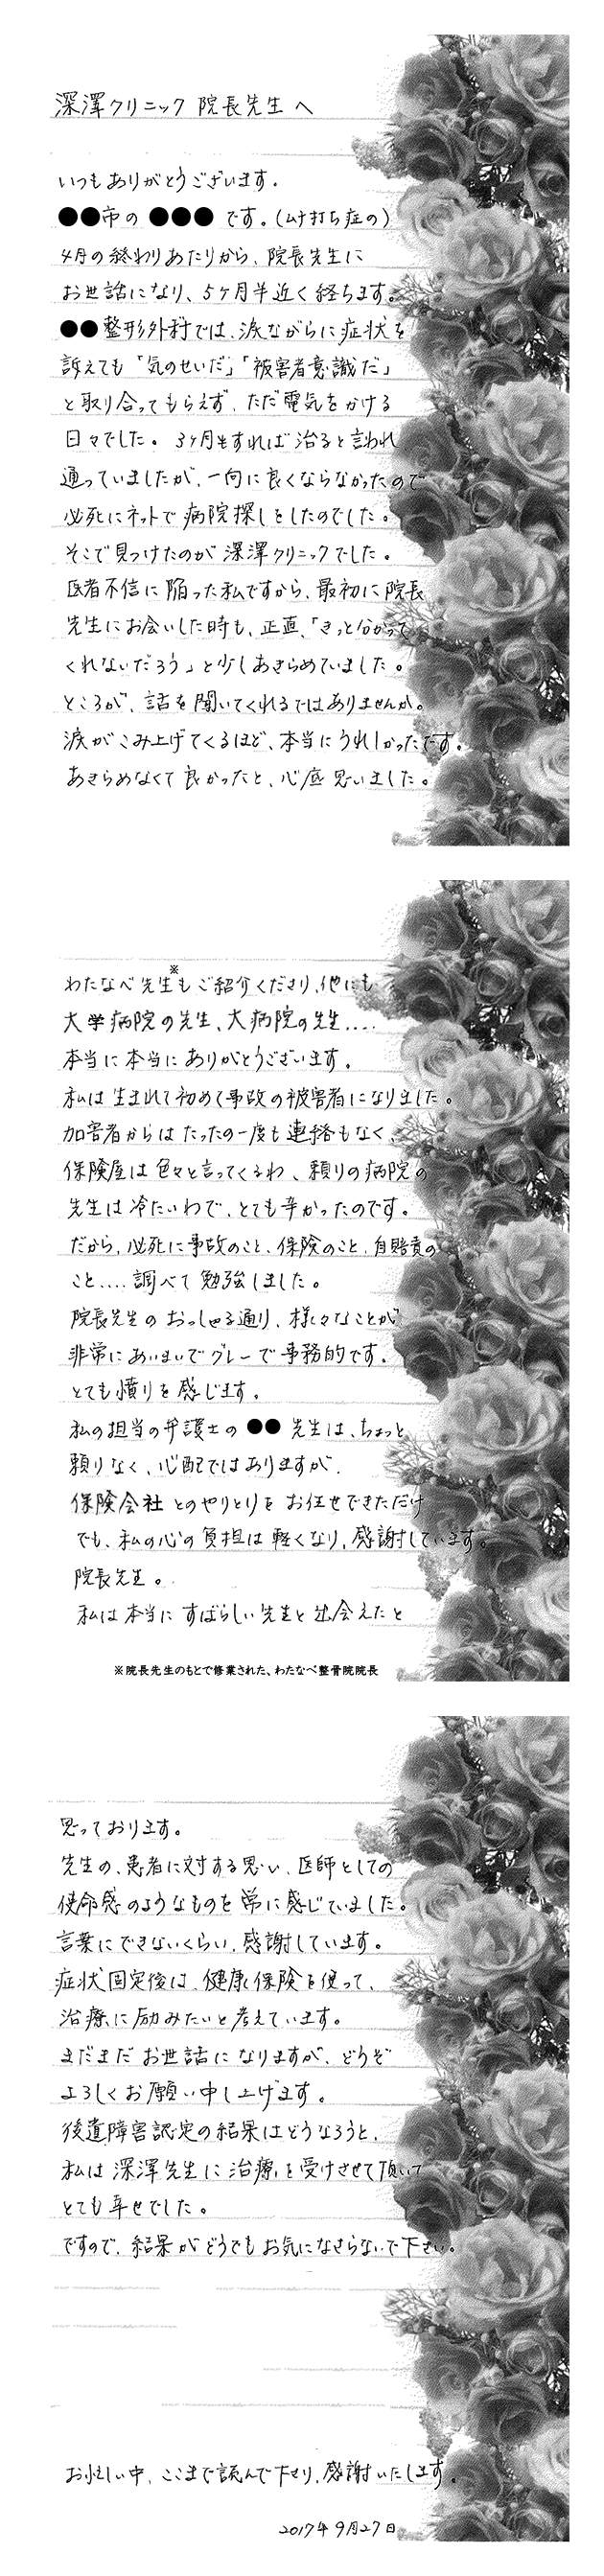 深澤クリニック 院長先生 へ
いつもありがとうございます。
●●市の ●●● です。(ムチ打ち症の)
4月の終わりあたりから、院長先生に
お世話になり、5ヶ月半近く経ちます。
●●整形外科では、涙ながらに症状を
訴えても「気のせいだ」「被害者意識だ」
と取り合ってもらえず、ただ電気をかける
日々でした。3ヶ月もすれば治ると言われ
通っていましたが、一向に良くならなかったので
必死にネットで病院探しをしたのでした。
そこで見つけたのが深澤クリニックでした。
医者不信に陥った私ですから、最初に院長
先生にお会いした時も、正直、「きっと分かって
くれないだろう」と少しあきらめていました。
ところが、話を聞いてくれるではありませんか。
涙がこみ上げてくるほど、本当にうれしかったです。
あきらめなくて良かったと、心底思いました。
わたなべ先生※もご紹介くださり、他にも
大学病院の先生、大病院の先生....
本当に本当にありがとうございます。
私は生まれて初めて事故の被害者になりました。
加害者からはたったの一度も連絡もなく、
保険屋は色々と言ってくるわ、頼りの病院の
先生は冷たいわで、とても辛かったのです。
だから、必死に事故のこと、保険のこと、自賠責の
こと....調べて勉強しました。
院長先生のおっしゃる通り、様々なことが
非常にあいまいでグレーで事務的です。
とても憤りを感じます。
私の担当の弁護士の ●● 先生は、ちょっと
頼りなく、心配ではありますが、
保険会社とのやりとりをお任せできただけ
でも、私の心の負担は軽くなり、感謝しています。
院長先生。
私は本当にすばらしい先生と出会えたと
※院長先生のもとで修業された、わたなべ整骨院院長
思っております。
先生の、患者に対する思い、医師としての
使命感のようなものを常に感じていました。
言葉にできないくらい、感謝しています。
症状固定後は、健康保険を使って、
治療に励みたいと考えています。
まだまだお世話になりますが、どうぞ
よろしくお願い申し上げます。
後遺障害認定の結果はどうなろうと、
私は深澤先生に治療を受けさせて頂いて
とても幸せでした。
ですので、結果がどうでもお気になさらないで下さい。
お忙しい中、ここまで読んで下さり、感謝いたします。
2017年9月27日